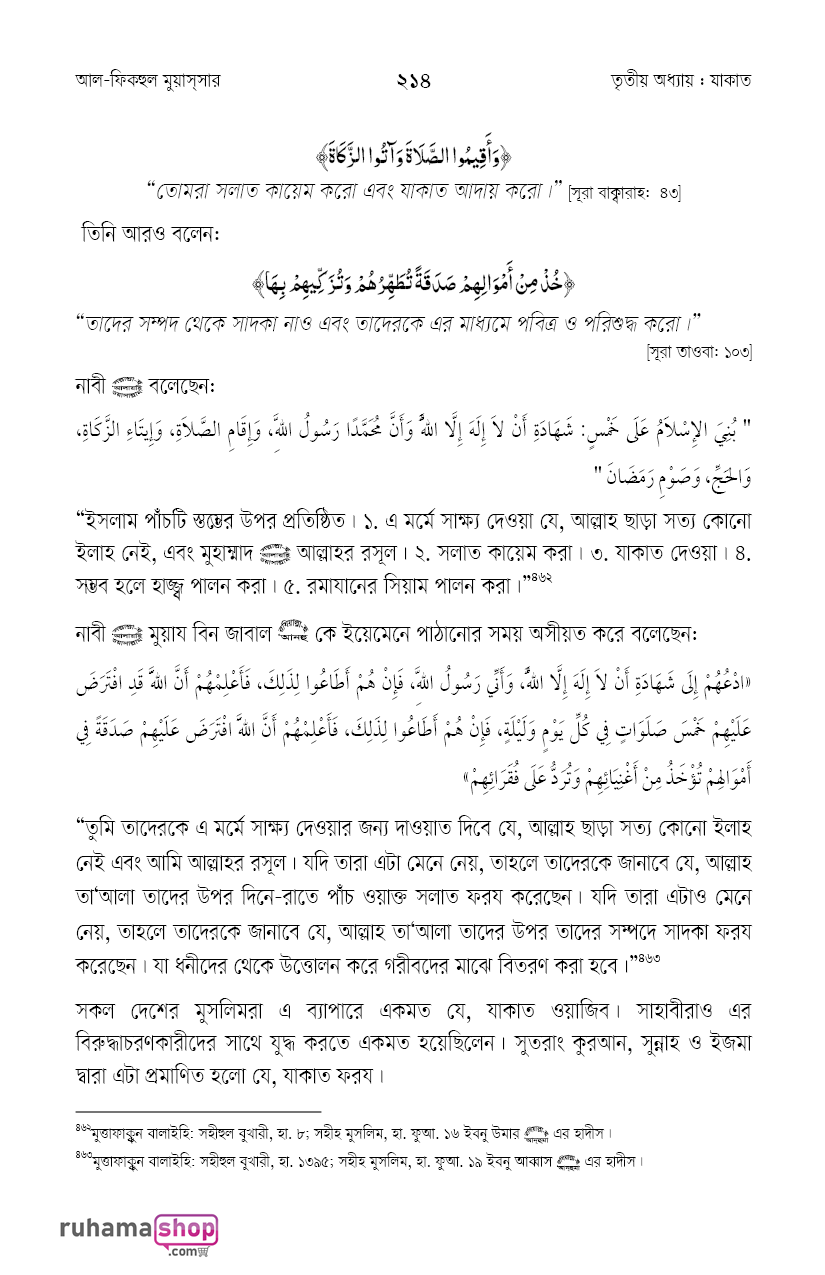 আল-ফিকহুল মুয়াস্সার ২১৪ তৃতীয় অধ্যায় : যাকাত
﴿وَأَقِيمُوا الصَّلَاةَ وَآتُوا الزَّكَاةَ﴾
“তোমরা সলাত কায়েম করো এবং যাকাত আদায় করো।” [সূরা বাক্বারাহ: ৪৩]
তিনি আরও বলেন:
﴿خُذْ مِنْ أَمْوَالِهِمْ صَدَقَةً تُطَهِّرُهُمْ وَتُزَكِّيهِمْ بِهَا﴾
“তাদের সম্পদ থেকে সাদকা নাও এবং তাদেরকে এর মাধ্যমে পবিত্র ও পরিশুদ্ধ করো।”
[সূরা তাওবা: ১০৩]
নাবী বলেছেন:
" بُنِيَ الإِسْلَامُ عَلَى خَمْسٍ: شَهَادَةِ أَنْ لاَ إِلَهَ إِلَّا اللهُ وَأَنَّ مُحَمَّدًا رَسُولُ اللهِ، وَإِقَامِ الصَّلاَةِ، وَإِيتَاءِ الزَّكَاةِ،
وَالحَجِّ، وَصَوْمِ رَمَضَانَ "
“ইসলাম পাঁচটি স্তম্ভের উপর প্রতিষ্ঠিত। ১. এ মর্মে সাক্ষ্য দেওয়া যে, আল্লাহ ছাড়া সত্য কোনো
ইলাহ নেই, এবং মুহাম্মাদ আল্লাহর রসূল। ২. সলাত কায়েম করা। ৩. যাকাত দেওয়া। ৪.
সম্ভব হলে হাজ্ব পালন করা। ৫. রমাযানের সিয়াম পালন করা।”৪৬২
নাবী মুয়ায বিন জাবাল কে ইয়েমেনে পাঠানোর সময় অসীয়ত করে বলেছেন:
«ادْعُهُمْ إِلَى شَهَادَةِ أَنْ لاَ إِلَهَ إِلَّا اللهُ، وَأَنِّي رَسُولُ اللهِ، فَإِنْ هُمْ أَطَاعُوا لِذَلِكَ، فَأَعْلِمْهُمْ أَنَّ اللهَ قَدِ افْتَرَضَ
عَلَيْهِمْ خَمْسَ صَلَوَاتٍ فِي كُلِّ يَوْمٍ وَلَيْلَةٍ، فَإِنْ هُمْ أَطَاعُوا لِذَلِكَ، فَأَعْلِمْهُمْ أَنَّ اللهَ افْتَرَضَ عَلَيْهِمْ صَدَقَةً فِي
أَمْوَالِهِمْ تُؤْخَذُ مِنْ أَغْنِيَائِهِمْ وَتُرَدُّ عَلَى فُقَرَائِهِمْ»
“তুমি তাদেরকে এ মর্মে সাক্ষ্য দেওয়ার জন্য দাওয়াত দিবে যে, আল্লাহ ছাড়া সত্য কোনো ইলাহ
নেই এবং আমি আল্লাহর রসূল। যদি তারা এটা মেনে নেয়, তাহলে তাদেরকে জানাবে যে, আল্লাহ
তা‘আলা তাদের উপর দিনে-রাতে পাঁচ ওয়াক্ত সলাত ফরয করেছেন। যদি তারা এটাও মেনে
নেয়, তাহলে তাদেরকে জানাবে যে, আল্লাহ তা‘আলা তাদের উপর তাদের সম্পদে সাদকা ফরয
করেছেন। যা ধনীদের থেকে উত্তোলন করে গরীবদের মাঝে বিতরণ করা হবে।”৪৬৩
সকল দেশের মুসলিমরা এ ব্যাপারে একমত যে, যাকাত ওয়াজিব। সাহাবীরাও এর
বিরুদ্ধাচরণকারীদের সাথে যুদ্ধ করতে একমত হয়েছিলেন। সুতরাং কুরআন, সুন্নাহ ও ইজমা
দ্বারা এটা প্রমাণিত হলো যে, যাকাত ফরয।
৪৬২মুত্তাফাকুন বালাইহি: সহীহুল বুখারী, হা. ৮; সহীহ মুসলিম, হা. ফুআ. ১৬ ইবনু উমার এর হাদীস।
৪৬৩মুত্তাফাকুন বালাইহি: সহীহুল বুখারী, হা. ১৩৯৫; সহীহ মুসলিম, হা. ফুআ. ১৯ ইবনু আব্বাস এর হাদীস।
ruhamashop
.com